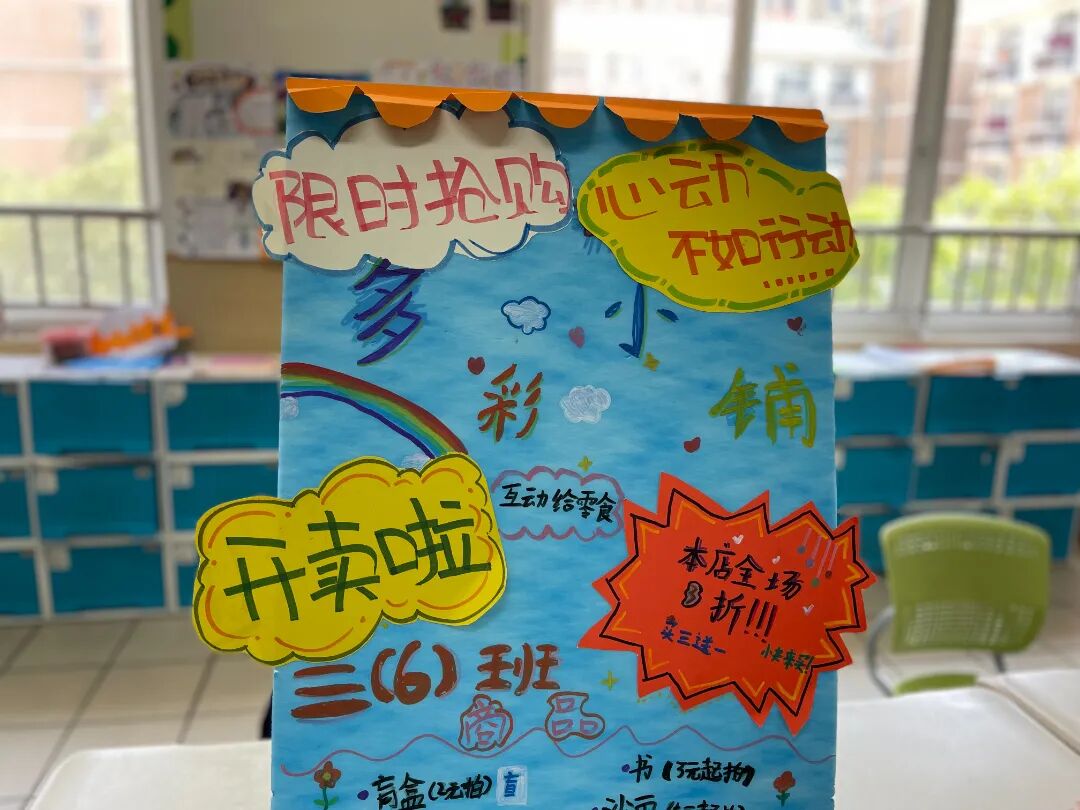 限时抢购
心动
不如行动......
多彩小铺
开卖啦
互动给零食
本店全场
8折!!!
买三送一
快来买!
三(6)班
商品
·盲盒(2元拍)盲
·书(3元起拍)